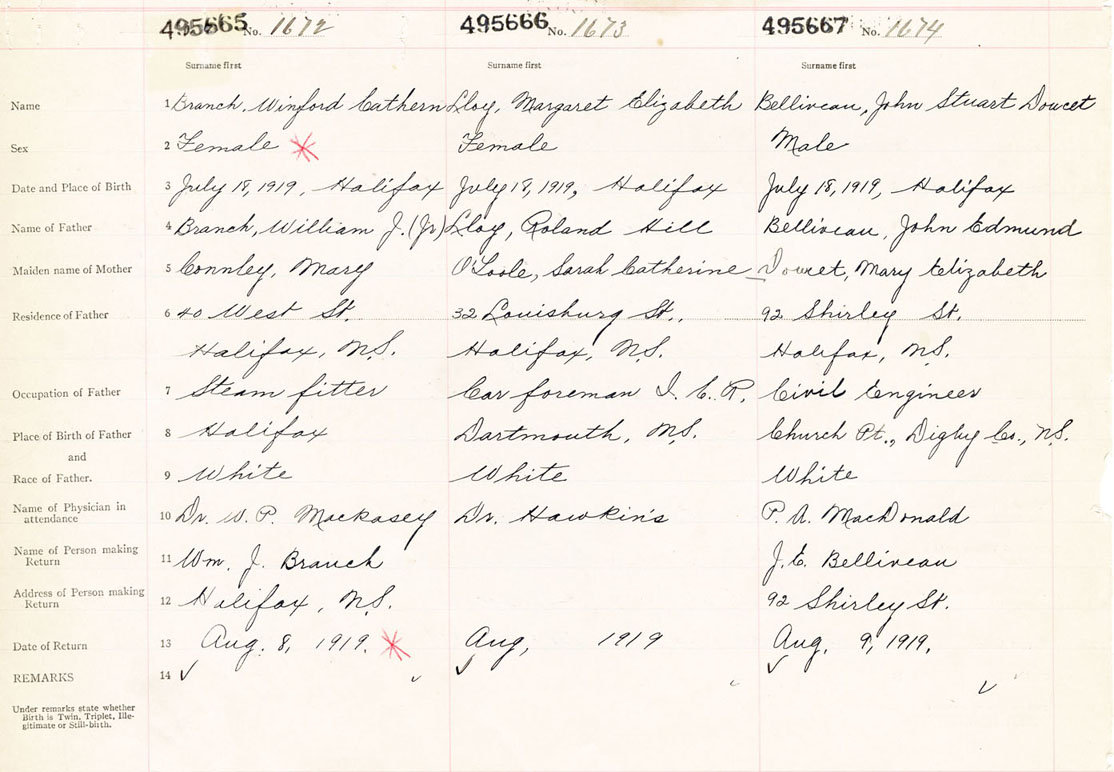 495665 No. 1672 495666 No. 1673 495667 No. 1674
Surname first Surname first Surname first
Name 1 Branch, Winford Cathern Lloy, Margaret Elizabeth Belliveau, John Stuart Doucet
Sex 2 Female Female Male
Date and Place of Birth 3 July 18, 1919, Halifax July 18, 1919, Halifax July 18, 1919, Halifax
Name of Father 4 Branch, William J. (Jr) Lloy, Roland Hill Belliveau, John Edmund
Maiden name of Mother 5 Connley, Mary O'Toole, Sarah Catherine Doucet, Mary Elizabeth
Residence of Father 6 40 West St. 32 Louisburg St., 92 Shirley St.
Halifax, N.S. Halifax, N.S. Halifax, N.S.
Occupation of Father 7 Steam fitter Car foreman I. C. R. Civil Engineer
Place of Birth of Father 8 Halifax Dartmouth, N.S. Church Pt., Digby Co., N.S.
and
Race of Father. 9 White White White
Name of Physician in
attendance 10 Dr. W. P. Mackasey Dr. Hawkin's P. A. MacDonald
Name of Person making
Return 11 Wm. J. Branch J. E. Belliveau
Address of Person making
Return 12 Halifax, N.S. 92 Shirley St.
Date of Return 13 Aug. 8, 1919. Aug, 1919 Aug. 9, 1919.
REMARKS 14
Under remarks state whether
Birth is Twin, Triplet, Ille-
gitimate or Still-birth.